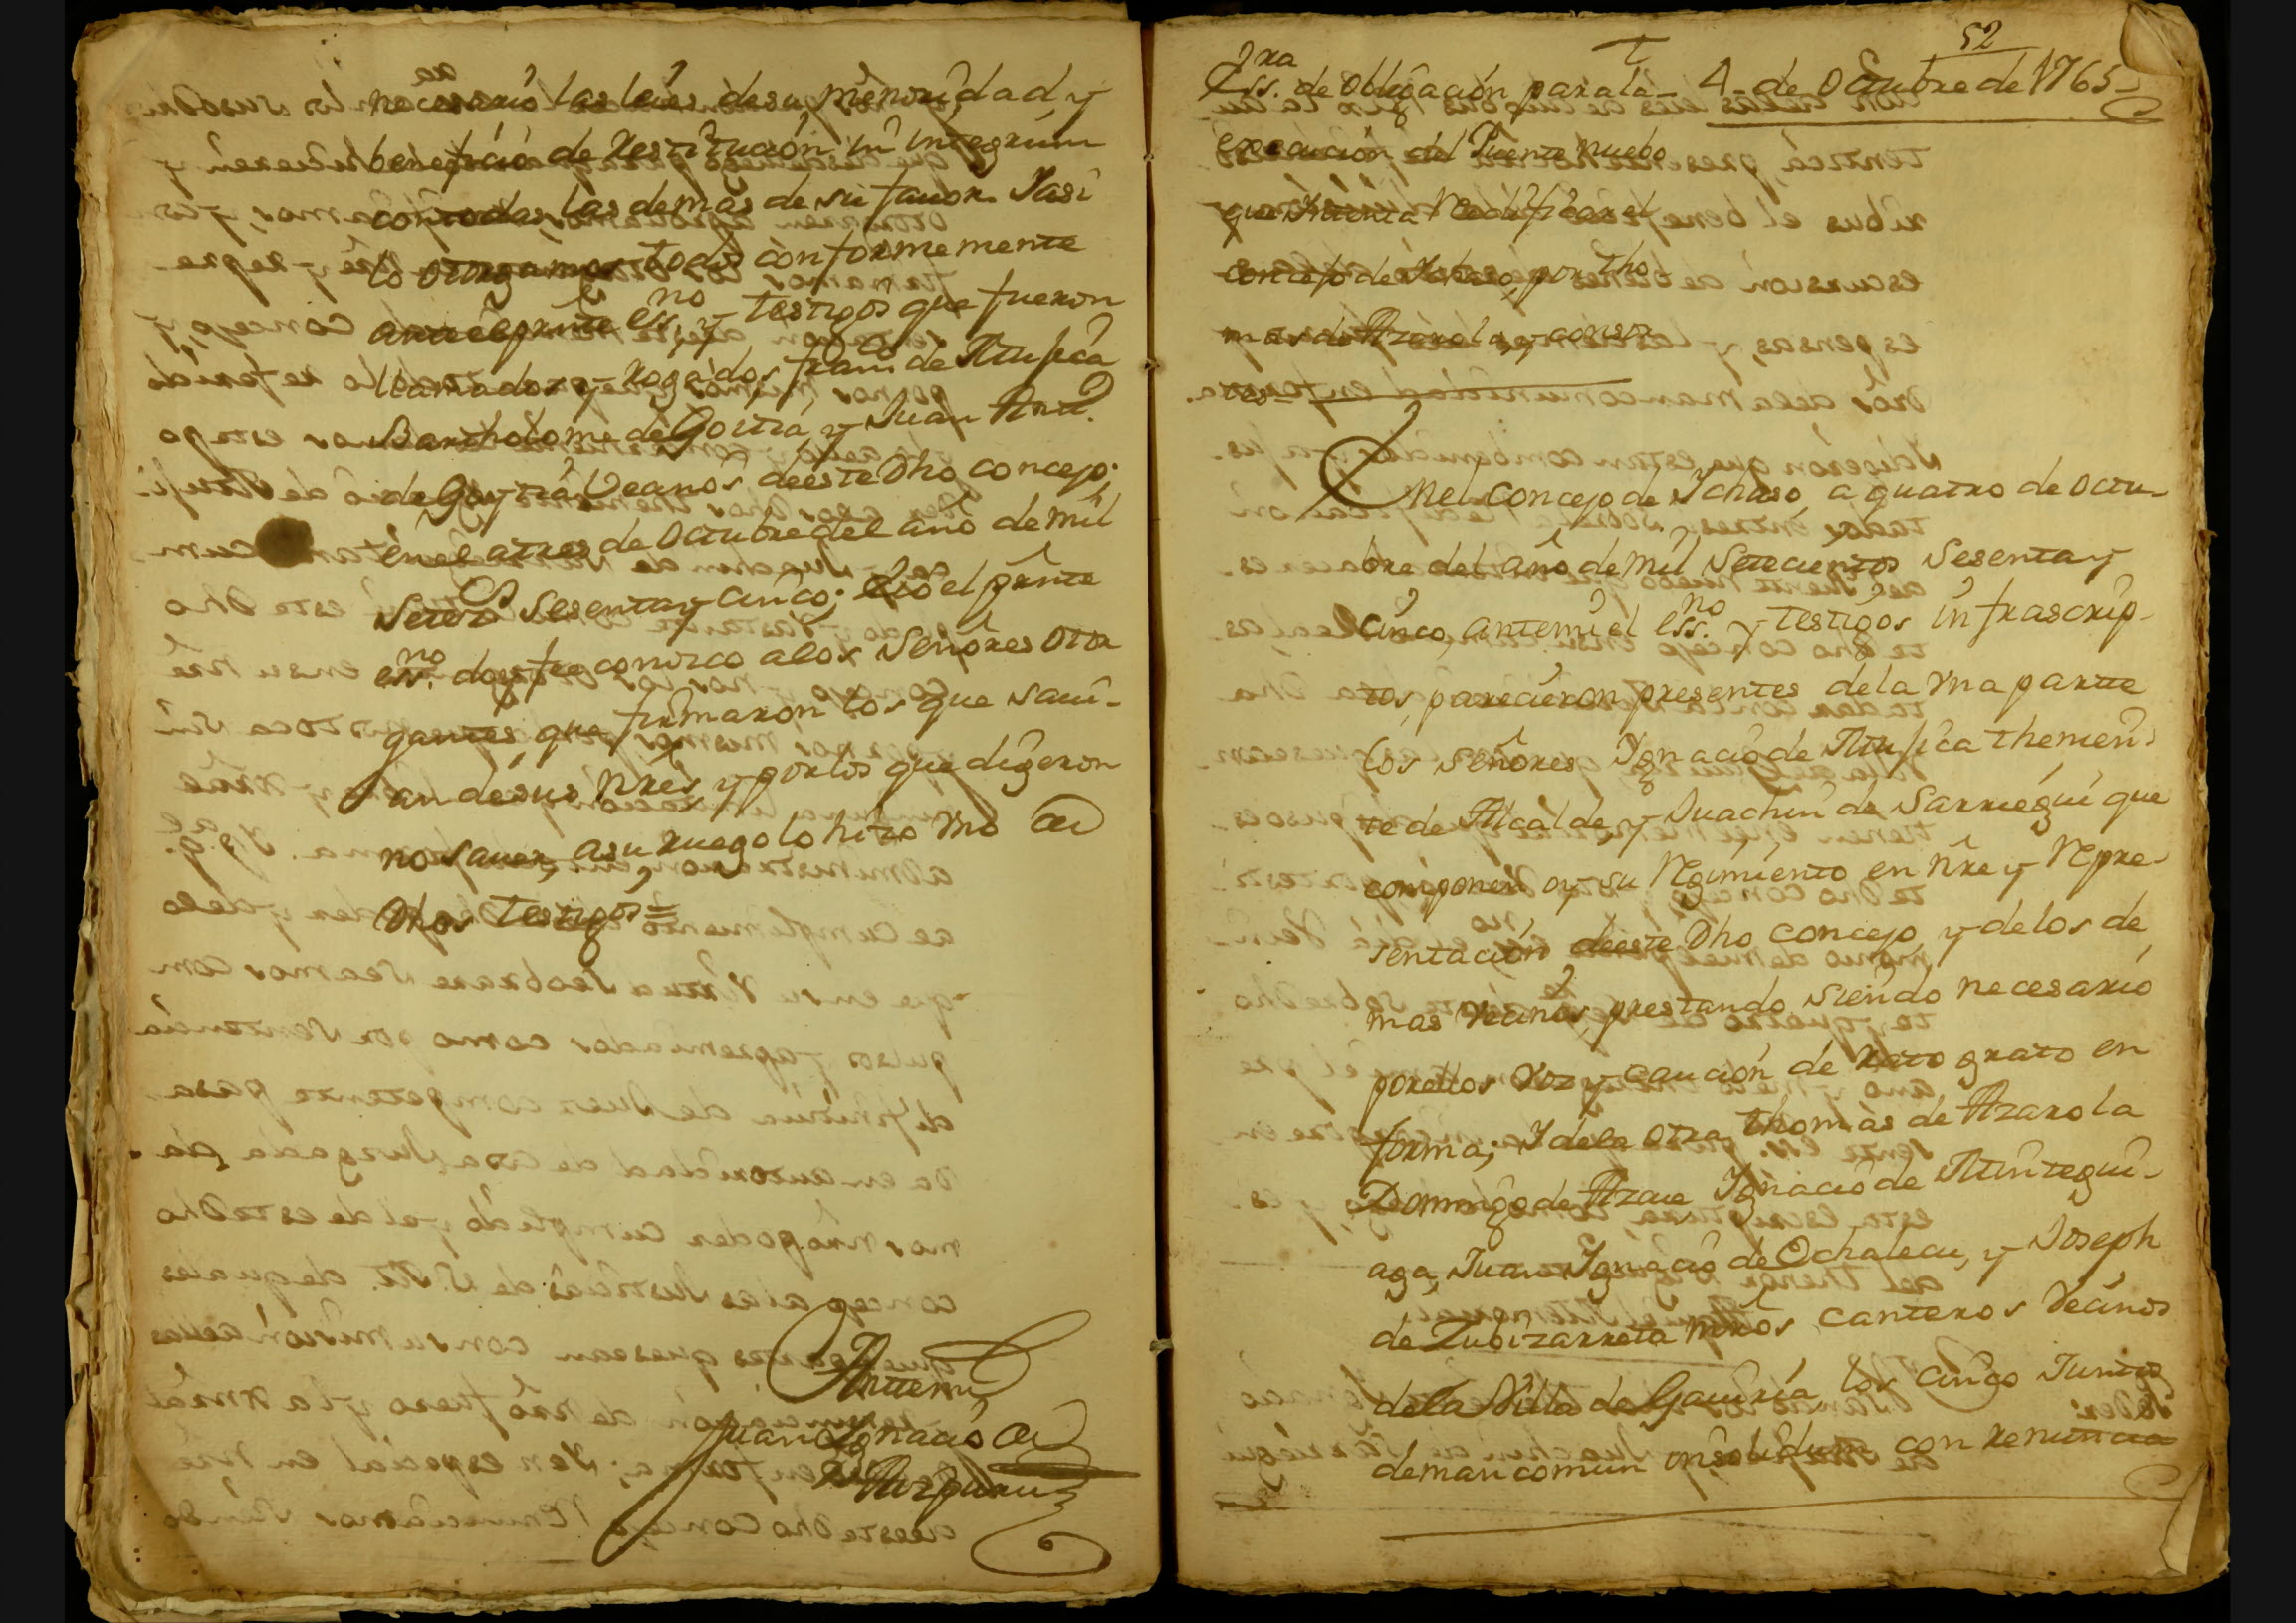 necesario las leies de su menoridad y
beneficio de restitucion in integrum
con todas las demas de su favor. Y asi
lo otorgamos todos conformemente
ante el prŝte ess.no y testigos que fueron
llamados y rogados fran.co de
Bartholome de Goitia, y Juan Ant.o
de Goytia Vecinos de este Dho concejo;
en el a tres de Octubre del año de mil
Setez.s Sesenta y cinco; E io el prŝte
ess.no doy fee conozco a los Señores Otor
gantes, que firmaron los que savi-
an de sus nr̃es y por los que digeron
no saver, a su ruego lo hizo vno de
Dhos testigos=
Antemi
Juan Ignacio de
52
Ess.ra de Obligacion para la - 4 - de Octubre de 1765
execucion del Puente nuebo
que Intenta Redificar el
concejo de Ychaso, por Tho
mas de Azarola, y consor
tes=
En el Concejo de Ychaso, a quatro de octu-
bre del año de mil Setecientos Sesenta y
Cinco, antemi el ess.no y testigos infrascrip-
tos, parecieron presentes de la vna parte
los Señores Ygnacio de themien-
te de Alcalde, y Juachin de Sarriegui que
componen oy su Regimiento en nr̃e y Repre-
sentacion de este Dho concejo, y de los de
mas vecinos, prestando siendo necesario
por ellos voz y caucion de rato grato en
forma; Y de la otra Thomas de Azarola
Domingo de Ygnacio de
aga, Juan Ygnacio de Ochalecu, y Joseph
de Zubizarreta mr̃os canteros Vecinos
de la Villa de Gaviria, los cinco Juntos
de mancomun insolidum con renuncia